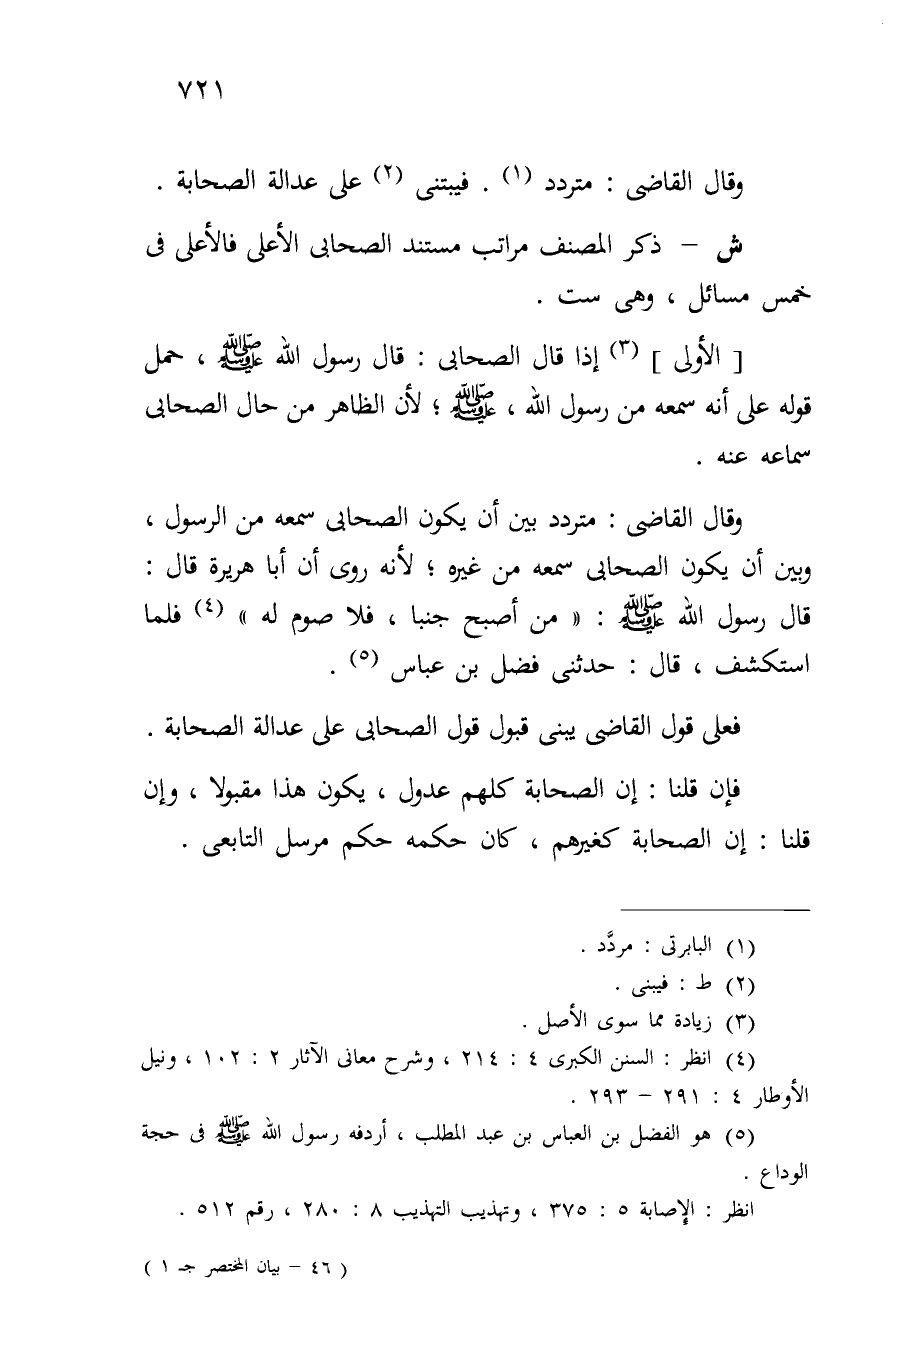 ٧٢١
وقال القاضى : متردد (١) . فيبتنى (٢) على عدالة الصحابة .
ش – ذكر المصنف مراتب مستند الصحابى الأعلى فالأعلى فى
خمس مسائل ، وهى ست .
[ الأولى ] (٣) إذا قال الصحابى : قال رسول الله ﷺ ، حمل
قوله على أنه سمعه من رسول الله ، ﷺ ؛ لأن الظاهر من حال الصحابى
سماعه عنه .
وقال القاضى : متردد بين أن يكون الصحابى سمعه من الرسول ،
وبين أن يكون الصحابى سمعه من غيره ؛ لأنه روى أن أبا هريرة قال :
قال رسول الله ﷺ : « من أصبح جنبا ، فلا صوم له » (٤) فلما
استكشف ، قال : حدثنى فضل بن عباس (٥) .
فعلى قول القاضى يبنى قبول قول الصحابى على عدالة الصحابة .
فإن قلنا : إن الصحابة كلهم عدول ، يكون هذا مقبولا ، وإن
قلنا : إن الصحابة كغيرهم ، كان حكمه حكم مرسل التابعى .
(١) البابرتى : مردَّد .
(٢) ط : فيبنى .
(٣) زيادة مما سوى الأصل .
(٤) انظر : السنن الكبرى ٤ : ٢١٤ ، وشرح معانى الآثار ٢ : ١٠٢ ، ونيل
الأوطار ٤ : ٢٩١ – ٢٩٣ .
(٥) هو الفضل بن العباس بن عبد المطلب ، أردفه رسول الله ﷺ فى حجة
الوداع .
انظر : الإصابة ٥ : ٣٧٥ ، وتهذيب التهذيب ٨ : ٢٨٠ ، رقم ٥١٢ .
( ٤٦ – بيان المختصر جـ ١ )